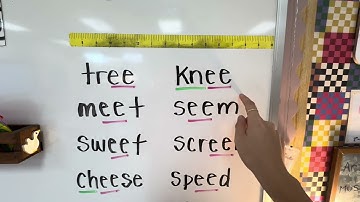 tree knee
meet seem
sweet scree
cheese speed